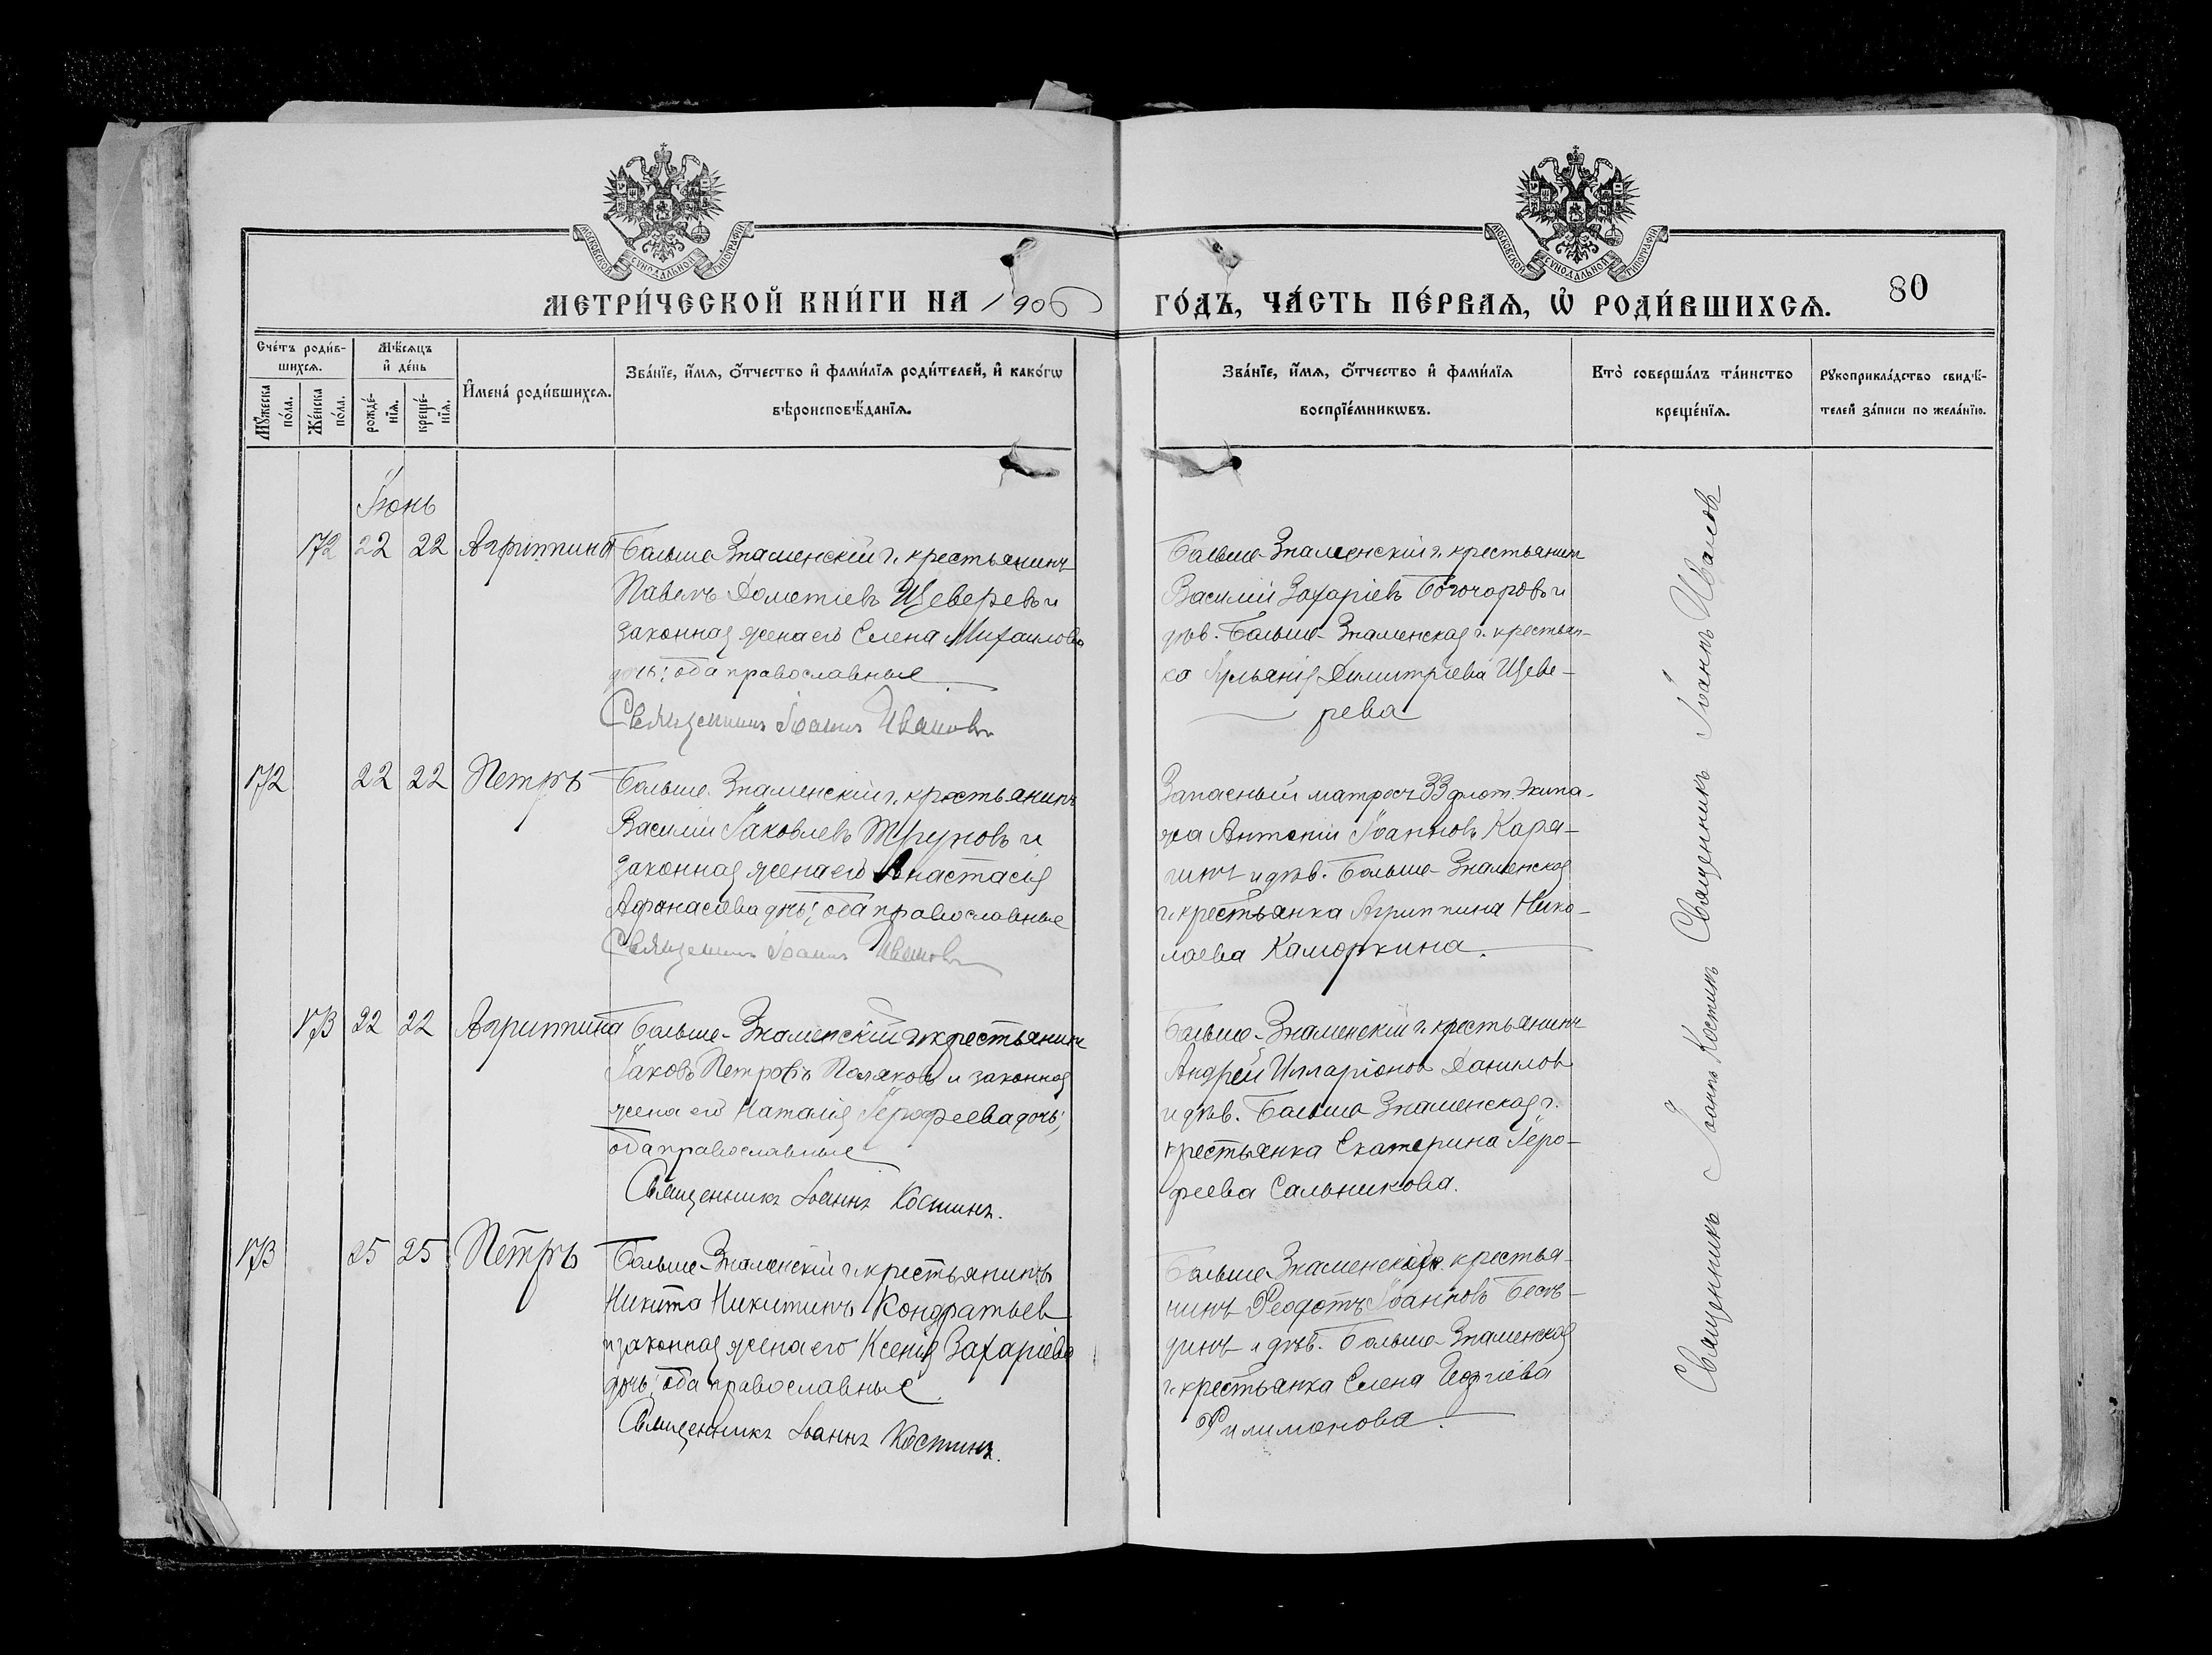 МОСКОВСКОЙ СѴНОДАЛЬНОЙ ТИПОГРАФІИ
МОСКОВСКОЙ СѴНОДАЛЬНОЙ ТИПОГРАФІИ
МЕТРИ́ЧЕСКОЙ КНИ́ГИ НА 1906
ГО́ДЪ, ЧА́СТЬ ПЕ́РВАѦ, Ѡ҆ РОДИ́ВШИХСѦ.
80
Сче́тъ роди́в-
шихсѧ.
Мꙋ́жеска
по́ла.
Же́нска
по́ла.
Мѣ́сѧцъ
и҆ де́нь
рожде́-
нїѧ.
креще́-
нїѧ.
И҆мена̀ роди́вшихсѧ.
Зва́нїе, и҆́мѧ, ѻ҆́тчество и҆ фами́лїѧ роди́телей, и҆ како́гѡ
вѣроисповѣ́данїѧ.
Зва́нїе, и҆́мѧ, ѻ҆́тчество и҆ фами́лїѧ
воспрїе́мникѡвъ.
Кто̀ соверша́лъ та́инство
креще́нїѧ.
Рꙋкоприкла́дство свидѣ́-
телей за́писи по жела́нїю.
Іюнь
172 22 22 Агриппина
Больше Знаменскій г. крестьянинъ
Павелъ Дометіевъ Щеверевъ и
законная жена его Елена Михаилова
дочь; оба православные
Священникъ Іоаннъ Ивановъ
Больше-Знаменскій г. крестьянин
Василій Захаріевъ Богочаровъ и
дѣв. Больше-Знаменская г. крестьян-
ка Іульянія Димитріева Щеве-
рева
172 22 22 Петръ
Больше Знаменскій г. крестьянинъ
Василій Іаковлевъ Жгуновъ и
законная жена его Анастасія
Афонасіева дочь; оба православные
Священникъ Іоаннъ Ивановъ
Запасный матросъ 33 флот. Экипа-
жа Антоній Іоанновъ Кара-
гинъ и дѣв. Больше-Знаменская
г. крестьянка Агриппина Нико-
лаева Каморкина.
173 22 22 Агриппина
Больше-Знаменскій г. крестьянинъ
Іаковъ Петровъ Поляковъ и законная
жена его Наталія Іерофеева дочь;
оба православные
Священникъ Іоаннъ Костинъ.
Больше-Знаменскій г. крестьянинъ
Андрей Илларіонов Данилов
и дѣв. Больше Знаменская г.
крестьянка Екатерина Іеро-
феева Сальникова.
173 25 25 Петръ
Больше-Знаменскій г. крестьянинъ
Никита Никитинъ Кондратьев
и законная жена его Ксенія Захаріева
дочь; оба православные.
Священникъ Іоаннъ Костинъ.
Больше-Знаменскій г. крестья-
нинъ Феодотъ Іоанновъ Бесѣ-
динъ и дѣв. Больше-Знаменская
г. крестьянка Елена
Филимонова.
Священникъ Іоаннъ Костинъ Священникъ Іоаннъ Ивановъ